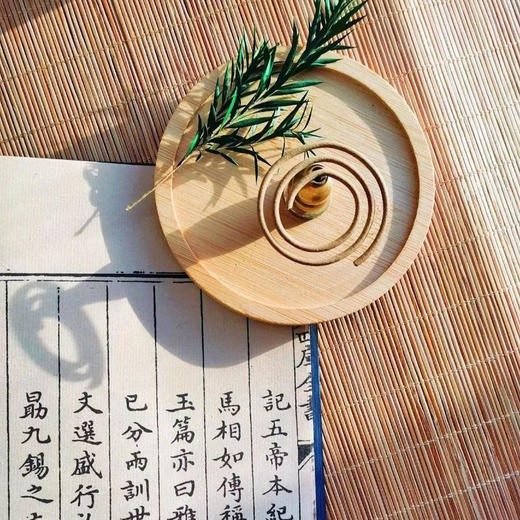 四庫全書
記五帝本紀
馬相如傳稱
玉篇亦曰雅
已分兩訓世
文選盛行
勗九錫之